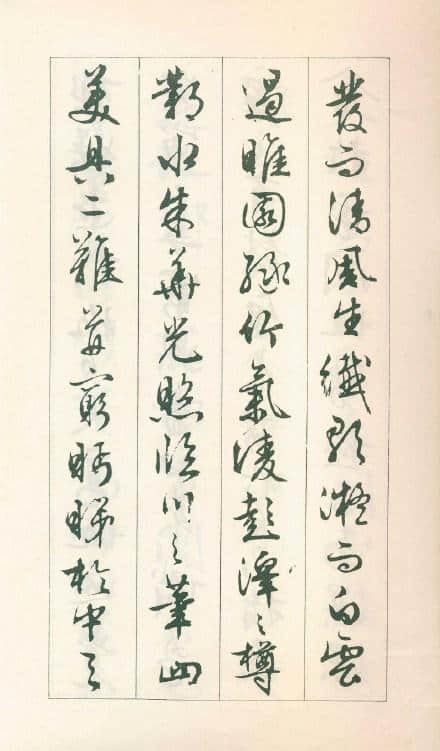 發而清風生纖歌凝而白雲
遏睢園綠竹氣凌彭澤之樽
鄴水朱華光照臨川之筆四
美具二難并窮眄睇於中天